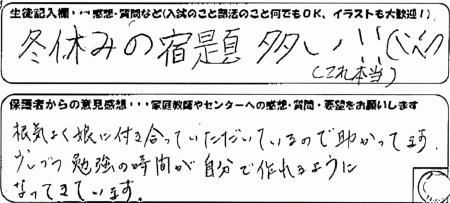 生徒記入欄・・・感想・質問など(入試のこと部活のこと何でもOK、イラストも大歓迎！)
冬休みの宿題 多しい!!
(これ本当)
保護者からの意見感想・・・家庭教師やセンターへの感想・質問・要望をお願いします
根気よく娘に付き合っていただいているので助かってます.
少しづつ勉強の時間が自分で作れるように
なってきています.